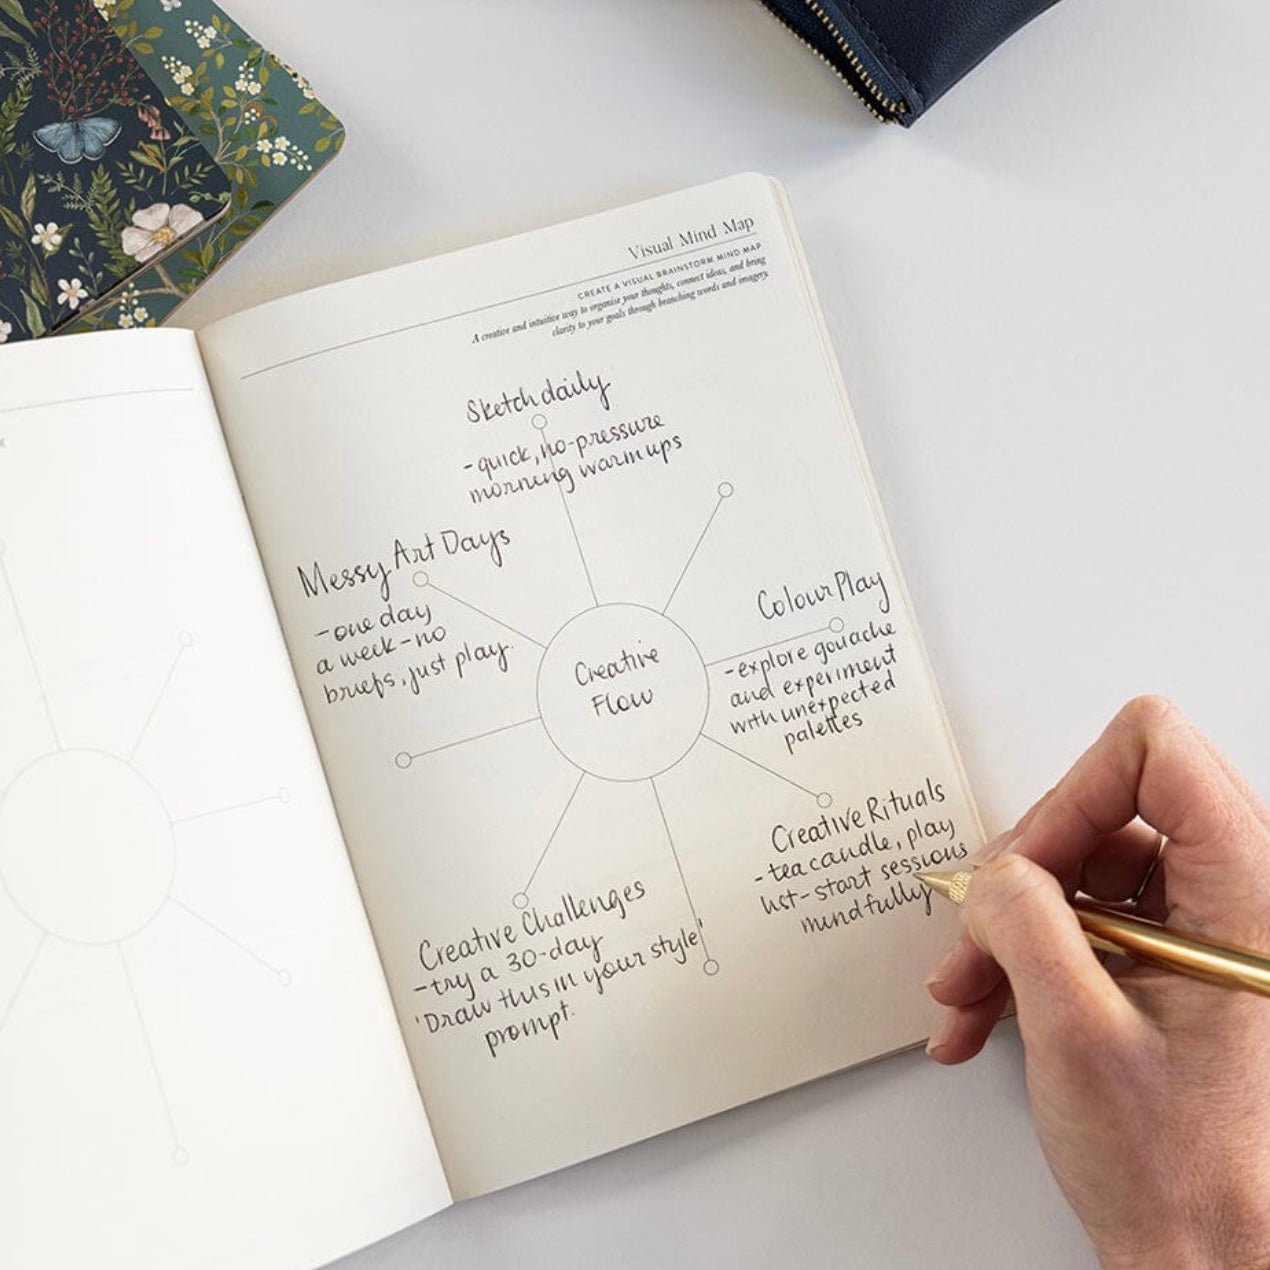 Visual Mind Map
CREATE A VISUAL BRAINSTORM MIND MAP
A creative and intuitive way to organise your thoughts, connect ideas, and bring
clarity to your goals through branching words and imagery.
Sketch daily
- quick, no-pressure
morning warm ups
Messy Art Days
- one day
a week - no
briefs, just play.
Colour Play
- explore gouache
and experiment
with unexpected
palettes
Creative
Flow
Creative Rituals
- tea candle, play
list - start sessions
mindfully
Creative Challenges
- try a 30-day
'Draw this in your style'
prompt.